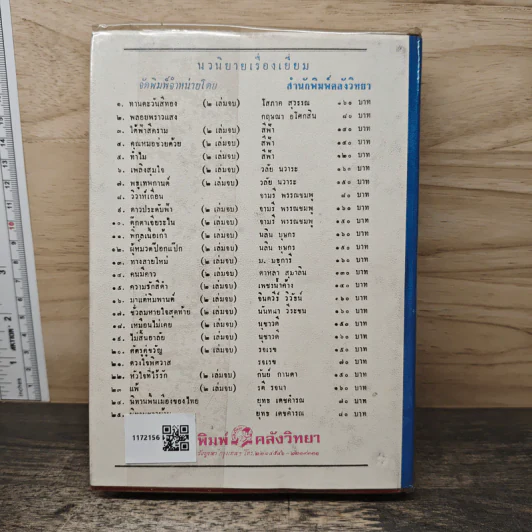 นวนิยายเรื่องเยี่ยม
จัดพิมพ์จำหน่ายโดย สำนักพิมพ์คลังวิทยา
๑. ทานตะวันสีทอง (๒ เล่มจบ) โสภาค สุวรรณ ๑๖๐ บาท
๒. พลอยพราวแสง (๒ เล่มจบ) กฤษณา อโศกสิน ๘๐ บาท
๓. ใต้ฟ้าสีคราม (๒ เล่มจบ) สีฟ้า ๑๕๐ บาท
๔. คุณหมอช่วยด้วย (๒ เล่มจบ) สีฟ้า ๑๕๐ บาท
๕. ทำไม (๒ เล่มจบ) สีฟ้า ๑๒๐ บาท
๖. เพลิงสุมใจ (๒ เล่มจบ) วลัย นวาระ ๑๖๐ บาท
๗. พธูเทพกานต์ (๒ เล่มจบ) วลัย นวาระ ๑๕๐ บาท
๘. วิวาห์เถื่อน จามรี พรรณชมพู ๘๐ บาท
๙. ดาวประดับฟ้า (๒ เล่มจบ) จามรี พรรณชมพู ๑๖๐ บาท
๑๐. (๒ เล่มจบ) จามรี พรรณชมพู ๑๕๐ บาท
๑๑. พิกุลเนื้อเก้า (๒ เล่มจบ) นลิน บุษกร ๑๖๐ บาท
๑๒. ผู้หมวดป๊อกแป๊ก (๒ เล่มจบ) นลิน บุษกร ๑๕๐ บาท
๑๓. ทางสายใหม่ (๒ เล่มจบ) ม. มธุการี ๑๖๐ บาท
๑๔. คนมีคาว (๒ เล่มจบ) ดาหลา สมาลิน ๑๓๐ บาท
๑๕. ความรักสีดำ (๒ เล่มจบ) เพชรน้ำค้าง ๑๕๐ บาท
๑๖. มาแต่หิมพานต์ (๒ เล่มจบ) จินตวีร์ วิวัธน์ ๑๖๐ บาท
๑๗. ชั่วลมหายใจสุดท้าย (๒ เล่มจบ) นันทนา วีระชน ๑๖๐ บาท
๑๘. เหมือนไม่เคย (๒ เล่มจบ) บุษาวดี ๑๕๐ บาท
๑๙. ไม่สิ้นอาลัย (๒ เล่มจบ) บุษาวดี ๑๖๐ บาท
๒๐. ศัตรูคู่ขวัญ (๒ เล่มจบ) รจเรข ๑๖๐ บาท
๒๑. ดวงใจพิศวาส รจเรข ๘๐ บาท
๒๒. หัวใจที่ไร้รัก (๒ เล่มจบ) กันย์ กานดา ๑๕๐ บาท
๒๓ แพ้ (๒ เล่มจบ) รตี รจนา ๑๖๐ บาท
๒๔. นิทานพื้นเมืองของไทย ยุทธ เดชคำรณ ๘๐ บาท
๒๕. ยุทธ เดชคำรณ ๘๐ บาท
พิมพ์ คลังวิทยา
1172156